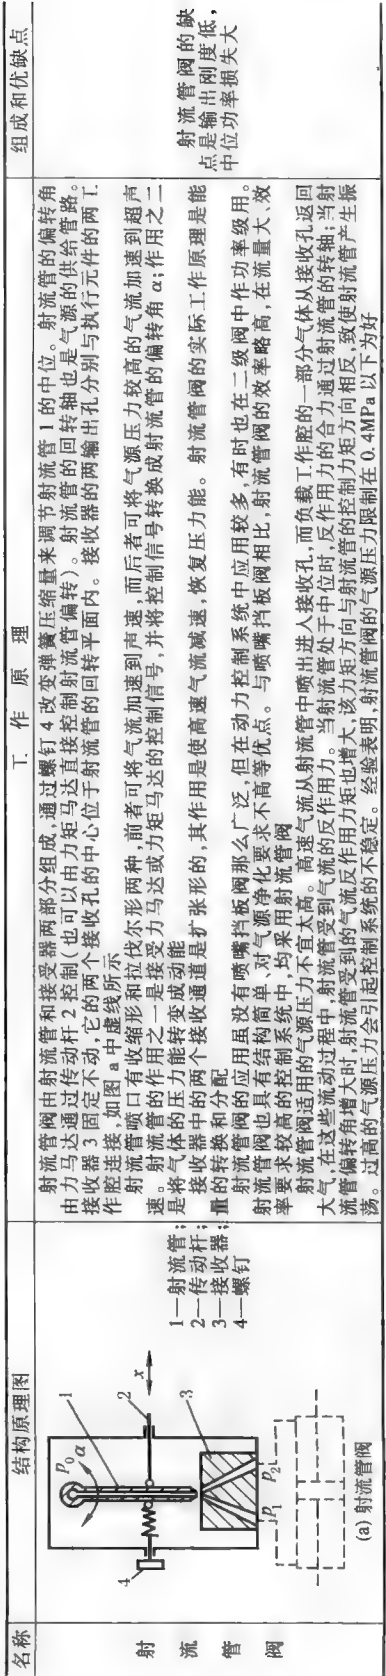 名称
结构原理图
工作原理
组成和优缺点
射流管阀
p0
α
1
2
x
3
4
p1
p2
(a) 射流管阀
1—射流管;
2—传动杆;
3—接收器;
4—螺钉
射流管阀由射流管和接受器两部分组成,通过螺钉 4 改变弹簧压缩量来调节射流管 1 的中位。射流管的偏转角
由力马达通过传动杆 2 控制(也可以由力矩马达直接控制射流管偏转)。射流管的回转轴也是气源的供给管路。
接收器 3 固定不动,它的两个接收孔的中心位于射流管的回转平面内。接收器的两输出孔分别与执行元件的两工
作腔连接,如图 a 中虚线所示
射流管喷口有收缩形和拉伐尔形两种,前者可将气流加速到声速,而后者可将气源压力较高的气流加速到超声
速。射流管的作用之一是接受力马达或力矩马达的控制信号,并将控制信号转换成射流管的偏转角 α;作用之二
是将气体的压力能转变成动能
接收器中的两个接收通道是扩张形的,其作用是使高速气流减速,恢复压力能。射流管阀的实际工作原理是能
量的转换和分配
射流管阀的应用虽没有喷嘴挡板阀那么广泛,但在动力控制系统中应用较多,有时也在二级阀中作功率级用。
射流管阀也具有结构简单、对气源净化要求不高等优点。与喷嘴挡板阀相比,射流管阀的效率略高,在流量大、效
率要求较高的控制系统中,均采用射流管阀
射流管阀适用的气源压力不宜太高。高速气流从射流管中喷出进入接收孔,而负载工作腔的一部分气体从接收孔返回
大气,在这些流动过程中,射流管受到气流的反作用力。当射流管处于中位时,反作用力的合力通过射流管的转轴;当射
流管偏转角增大时,射流管受到的气流反作用力矩也增大,该力矩方向与射流管的控制力矩方向相反,致使射流管产生振
荡。过高的气源压力会引起控制系统的不稳定。经验表明,射流管阀的气源压力限制在 0.4MPa 以下为好
射流管阀的缺
点是输出刚度低,
中位功率损失大